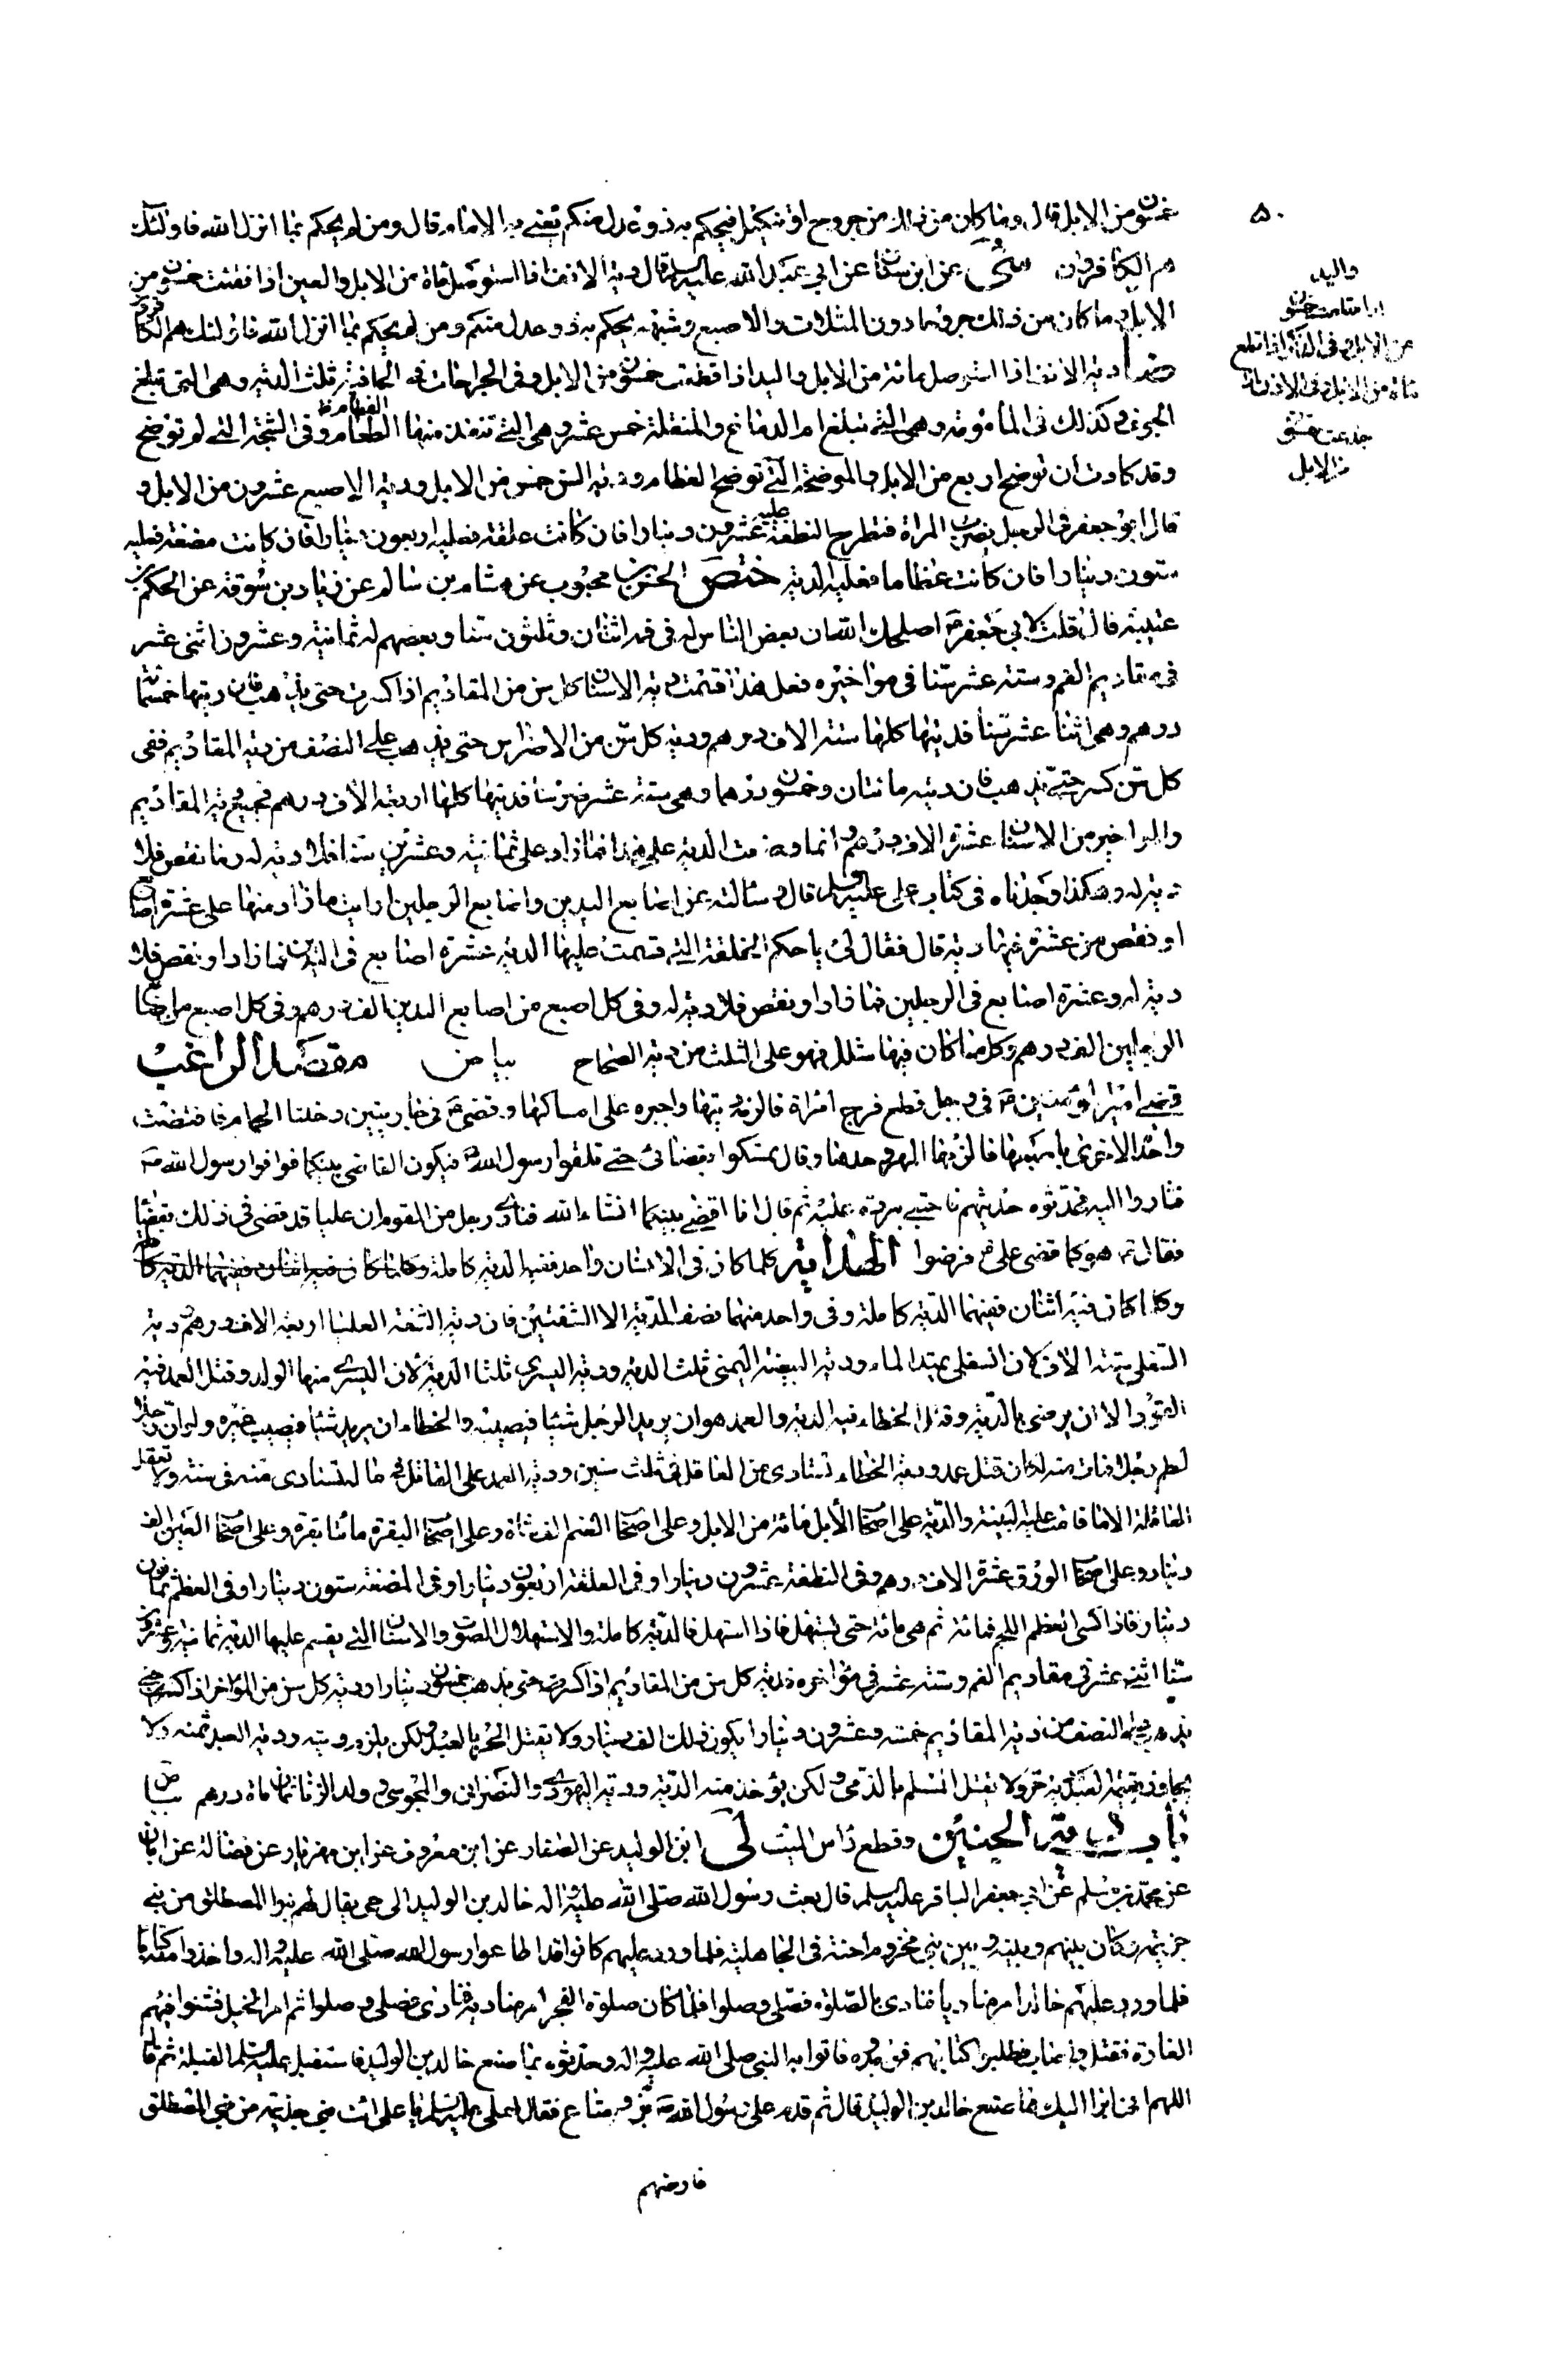 ۵۰
خمسون من الابل قال وما كان من ذلك من جروح او تنكيل فيحكم به ذوا عدل منكم يعني به الامام قال ومن لم يحكم بما انزل الله فاولئك
هم الكافرون عن ابن سنان عن ابي عبد الله عليه السلم قال دية الانف اذا استوصل مائة من الابل والعين اذا فقئت خمسون من
الابل وما كان من ذلك جروحا دون المثلات والاصبع وشبهه يحكم به ذو عدل منكم ومن لم يحكم بما انزل الله فاولئك هم الكافرون
ضا دية الانف اذا استوصل مائة من الابل واليد اذا قطعت خمسون من الابل وفي الجراحات في الجائفة ثلث الدية وهي التي تبلغ
الجوف وكذلك في المأمومة وهي التي تبلغ ام الدماغ والمنقلة خمس عشر وهي التي تنفذ منها العظام وفي الشجة التي لم توضح
وقد كادت ان توضح اربع من الابل والموضحة التي توضح العظام ودية السن خمس من الابل ودية الاصبع عشرون من الابل و
قال ابو جعفر في الرجل يضرب المراة فتطرح النطفة عليه عشرون دينارا فان كانت علقة فعليه اربعون دينارا فان كانت مضغة فعليه
ستون دينارا فان كانت عظاما فعليه الدية ختص ابن محبوب عن هشام بن سالم عن زياد بن سوقة عن الحكم بن
عتيبة قال قلت لابي جعفر اصلحك الله ان بعض الناس له في فمه اثنان وثلثون سنا وبعضهم له ثمانية وعشرون اثنى عشر
في مقاديم الفم وستة عشر سنا في مواخيره فعلى هذا قسمت دية الاسنان كل سن من المقاديم اذا كسرت حتى يذهب فان ديتها خمسمائة
درهم وهي اثنا عشر سنا فديتها كلها ستة الاف درهم ودية كل سن من الاضراس حتى يذهب على النصف من دية المقاديم ففي
كل سن كسر حتى يذهب فان ديته مائتان وخمسون درهما وهي ستة عشر ضرسا فديتها كلها اربعة الاف درهم فجميع دية المقاديم
والمواخير من الاسنان عشرة الاف درهم وانما وضعت الدية على هذا فما زاد على ثمانية وعشرين سنا فلا دية له وما نقص فلا
دية له وهكذا وجدناه في كتاب علي عليه السلم قال وسألته عن اصابع اليدين واصابع الرجلين ارايت ما زاد منها على عشرة اصابع
او نقص من عشرة فيها دية قال فقال لي يا حكم الخلقة التي قسمت عليها الدية عشرة اصابع في اليدين فما زاد او نقص فلا
دية له وعشرة اصابع في الرجلين فما زاد او نقص فلا دية له وفي كل اصبع من اصابع اليدين الف درهم وفي كل اصبع من اصابع
الرجلين الف درهم وكل ما كان فيها شلل فهو على الثلث من دية الصحاح بياض مقصد الراغب
قضى امير المؤمنين في رجل قطع فرج امراة فالزمه ديتها واجبره على امساكها وقضى في جاريتين دخلتا الحمام فافتضت
واحدة الاخرى باصبعها فالزمها المهر وحدها وقال تمسكوا بقضائي حتى تلقوا رسول الله فيكون القاضي بينكما فوافوا رسول الله
فثاروا اليه فحدثوه حديثهم فاحتبى ببردة عليه ثم قال انا اقضي بينكما انشاء الله فنادى رجل من القوم ان عليا قد قضى في ذلك بقضاء
فقال هو كما قضى علي فرضوا الهداية كلما كان في الانسان واحد ففيه الدية كاملة
وكلما كان فيه اثنان ففيهما الدية كاملة وفي واحد منهما نصف الدية الا الشفتين فان دية الشفة العليا اربعة الاف درهم ودية
السفلى ستة الاف لان السفلى يمتد الماء ودية البيضة اليمنى ثلث الدية ودية اليسرى ثلثا الدية لان اليسرى منها الولد وقتل العمد فيه
القود الا ان يرضى بالدية وقتل الخطاء فيه الدية والعمد هو ان يريد الرجل شيئا فيصيبه والخطاء ان يريد شيئا فيصيب غيره ولو ان رجلا
لطم رجلا فمات منه لكان قتل عمد ودية الخطاء تستادى من العاقلة في ثلث سنين ودية العمد على القاتل في ماله تستادى منه في سنة ولا تعقل
العاقلة الا ما قامت عليه البينة والدية على اصحاب الابل مائة من الابل وعلى اصحاب الغنم الف شاة وعلى اصحاب البقرة مائتا بقرة وعلى اصحاب العين الف
دينار وعلى اصحاب الورق عشرة الاف درهم وفي النطفة عشرون دينارا وفي العلقة اربعون دينارا وفي المضغة ستون دينارا وفي العظم ثمانون
دينار فاذا اكسى العظم اللحم فمائة ثم هي مائة حتى يستهل فاذا استهل فالدية كاملة والاستهلال الصوت والاسنان التي يقسم عليها الدية ثمانية وعشرون
سنا اثنى عشر في مقاديم الفم وستة عشر في مواخره فدية كل سن من المقاديم اذا كسرت حتى يذهب خمسون دينارا ودية كل سن من المواخر اذا كسرت حتى
يذهب على النصف من دية المقاديم خمسة وعشرون دينارا يكون ذلك الف دينار ولا يقتل الحر بالعبد ولكن يلزم ديته ودية العبد ثمنه ولا
يجاوز بقيمة العبد دية حر ولا يقتل المسلم بالذمي ولكن يؤخذ منه الدية ودية اليهودي والنصراني والمجوسي وولد الزنا ثمان مائة درهم بياض
باب دية الجنين وقطع راس الميت لي ابن الوليد عن الصفار عن ابن معروف عن ابن مهزيار عن فضالة عن ابان
عن محمد بن مسلم عن ابي جعفر الباقر عليه السلم قال بعث رسول الله صلى الله عليه واله خالد بن الوليد الى حي يقال لهم بنوا المصطلق من بني
جزيمة وكان بينهم وبينه وبين بني مخزوم احنة في الجاهلية فلما ورد عليهم كانوا قد اطاعوا رسول الله صلى الله عليه واله واخذوا منه كتابا
فلما ورد عليهم خالد امر مناديا فنادى بالصلوة فصلى وصلوا فلما كان صلوة الفجر امر مناديه فنادى فصلى وصلوا ثم امر الخيل فشنوا فيهم
الغارة فقتل واصاب فطلبوا كتابهم فوجدوه فاتوا به النبي صلى الله عليه واله وحدثوه بما صنع خالد بن الوليد فاستقبل عليه السلم القبلة ثم قال
اللهم اني ابرا اليك مما صنع خالد بن الوليد قال ثم قدم على رسول الله تبر ومتاع فقال لعلي عليه السلم يا علي ائت بني جذيمة من بني المصطلق
فارضهم
واليد
خمسون
من الابل وفي الذكر اذا قطع
مائة من الابل وفي الاذن اذا
جدعت خمسون
من الابل